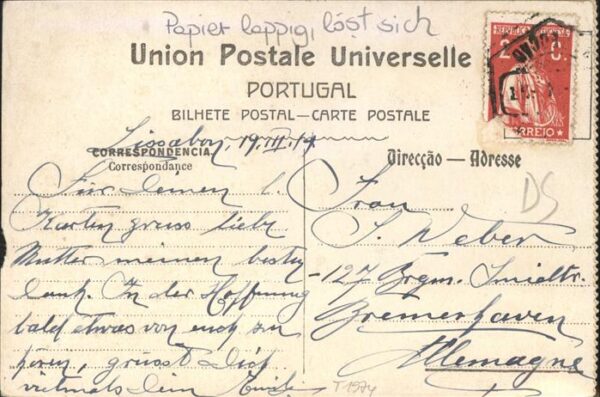 Papier lappig, löst sich
Union Postale Universelle
PORTUGAL
BILHETE POSTAL—CARTE POSTALE
Lissabon, 19.III.14
CORRESPONDENCIA
Correspondance
Direcção — Adresse
Für Deinen l.
Karten gruss liebe
Mutter meinen besten
Dank. In der Hoffnung
bald etwas von euch zu
hören, grüsst Dich
vielmals Dein
Frau
J. Weber
127 Brgm. Smidtstr.
Bremerhaven
Allemagne
DS
T1974
REPUBLICA PORTUGUESA
2 C.
CORREIO